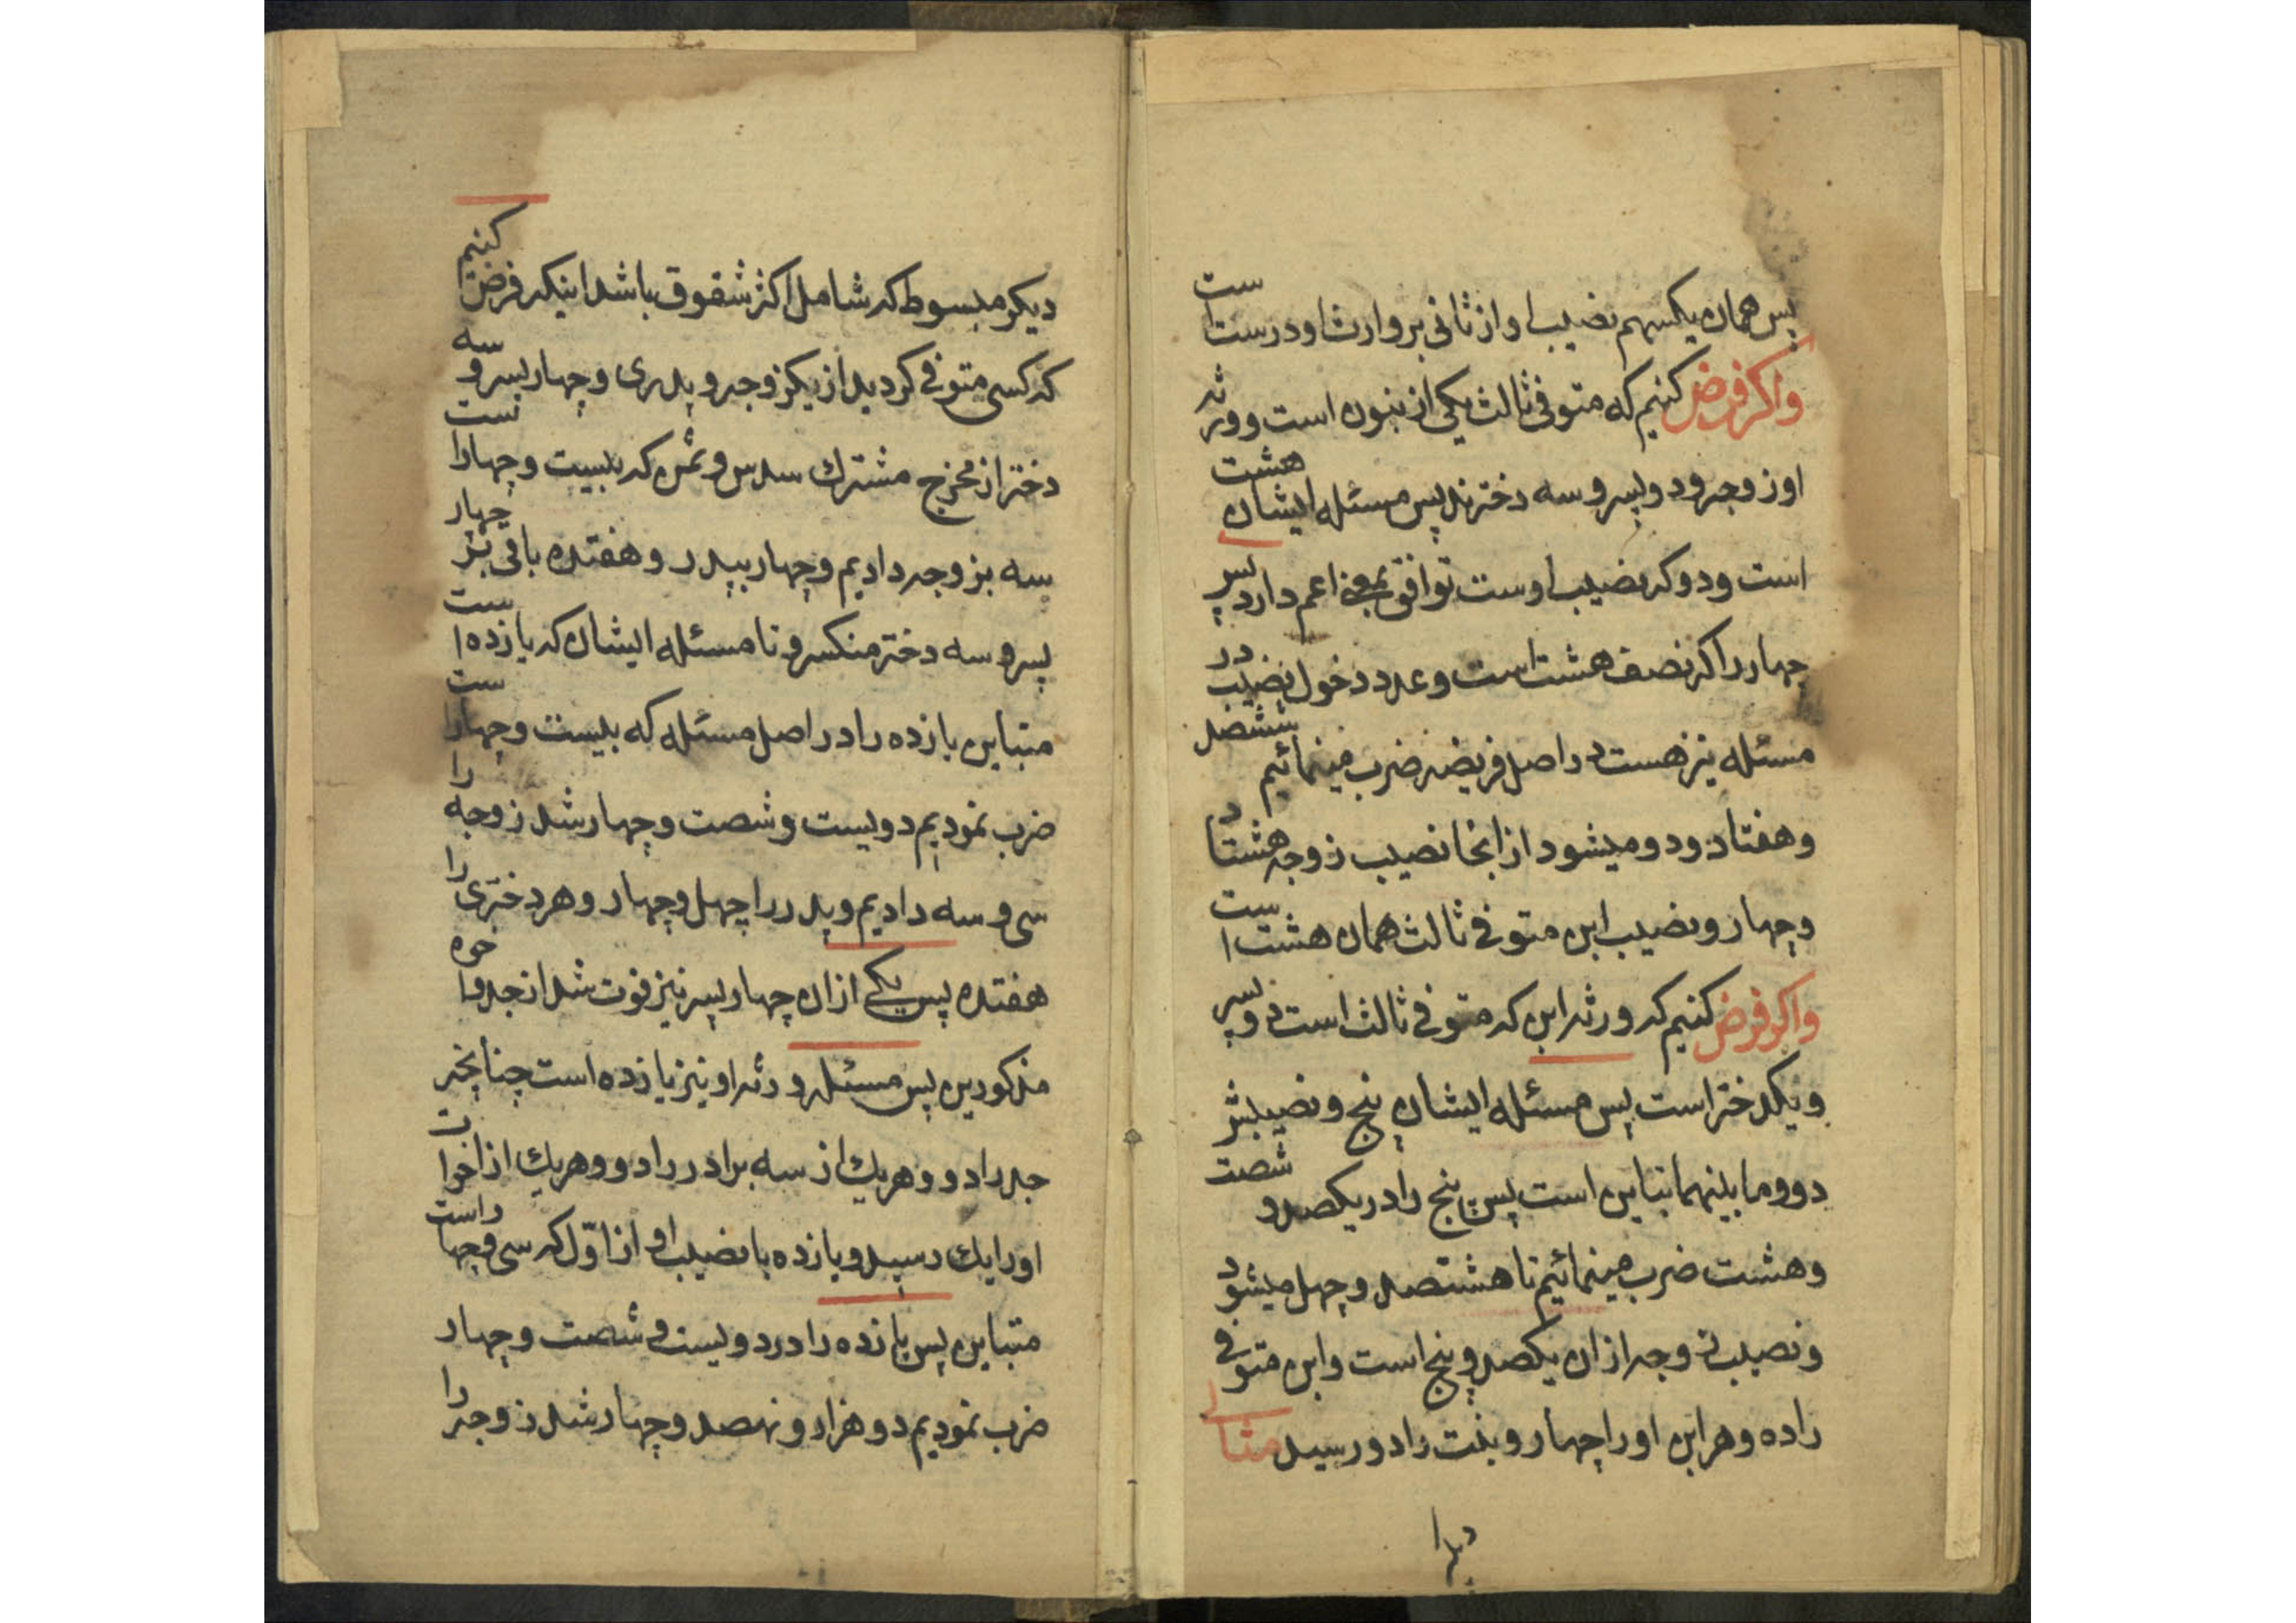 پس همان یکسهم نصیب او از ثانی بر وارث او درست است
واکر فرض کنیم که متوفی ثالث یکی از بنون است و ورثه
او زوجه و دو پسر و سه دخترند پس مسئله ایشان هشت
است و دو که نصیب اوست توافق بمعنی اعم دارد پس
چهار را که نصف هشت است و عدد دخول نصیب در
مسئله نیز هست در اصل فریضه ضرب مینمائیم ششصد
و هفتاد و دو میشود از انجا نصیب زوجه هشتاد
و چهار و نصیب ابن متوفی ثالث همان هشت است
واکر فرض کنیم که ورثه ابن که متوفی ثالث است دو پسر
و یکدختر است پس مسئله ایشان پنج و نصیبش
دو و ما بینهما تباین است پس پنج را در یکصد و شصت
و هشت ضرب مینمائیم تا هشتصد و چهل میشود
و نصیب زوجه ازان یکصد و پنج است و ابن متوفی
را ده و هر ابن او را چهار و بنت را دو رسید مثال
دیکر مبسوط که شامل اکثر شقوق باشد اینکه فرض کنیم
که کسی متوفی کردید از یکزوجه و پدری و چهار پسر و سه
دختر از مخرج مشترك سدس و ثمن که بیست و چهار است
سه بزوجه دادیم و چهار بپدر و هفتده باقی بر چهار
پسر و سه دختر منکسر و تا مسئله ایشان که یازده است
متباین یازده را در اصل مسئله که بیست و چهار است
ضرب نمودیم دویست و شصت و چهار شد زوجه را
سی و سه دادیم و پدر را چهل و چهار و هر دختری را
هفتده پس یکی ازان چهار پسر نیز فوت شد از جد و اخوه
مذکورین پس مسئله ورثه او نیز یازده است چنانچه
جد را دو و هریك از سه برادر را دو و هریك از اخوات
او را یك رسید و یازده با نصیب او از اوّل که سی و چهار است
متباین پس یازده را در دویست و شصت و چهار
ضرب نمودیم دو هزار و نهصد و چهار شد زوجه را